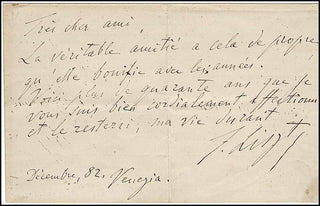 Très cher ami,
La véritable amitié a cela de propre
qu'elle bonifie avec les années.
Voici plus de quarante ans que je
vous suis bien cordialement affectionné
et le resterai, ma vie durant.
F. Liszt
Décembre, 82. Venezia.